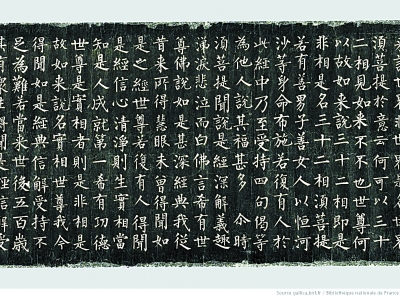 須菩提於意云何可以三十
二相見如来不不也世尊何
以故如来說三十二相即是
非相是名三十二相須菩提
若有善男子善女人以恒河
沙等身命布施若復有人於
此經中乃至受持四句偈等
為他人說其福甚多 尒時
須菩提聞說是經深解義趣
涕淚悲泣而白佛言希有世
尊佛說如是甚深經典我從
昔来所得慧眼未曾得聞如
是之經世尊若復有人得聞
是經信心清淨則生實相當
知是人成就第一希有功德
世尊是實相者則是非相是
故如来說名實相世尊我今
得聞如是經典信解受持不
足為難若當来世後五百歲
其有眾生得聞是經信解受
Source gallica.bnf.fr / Bibliothèque nationale de France